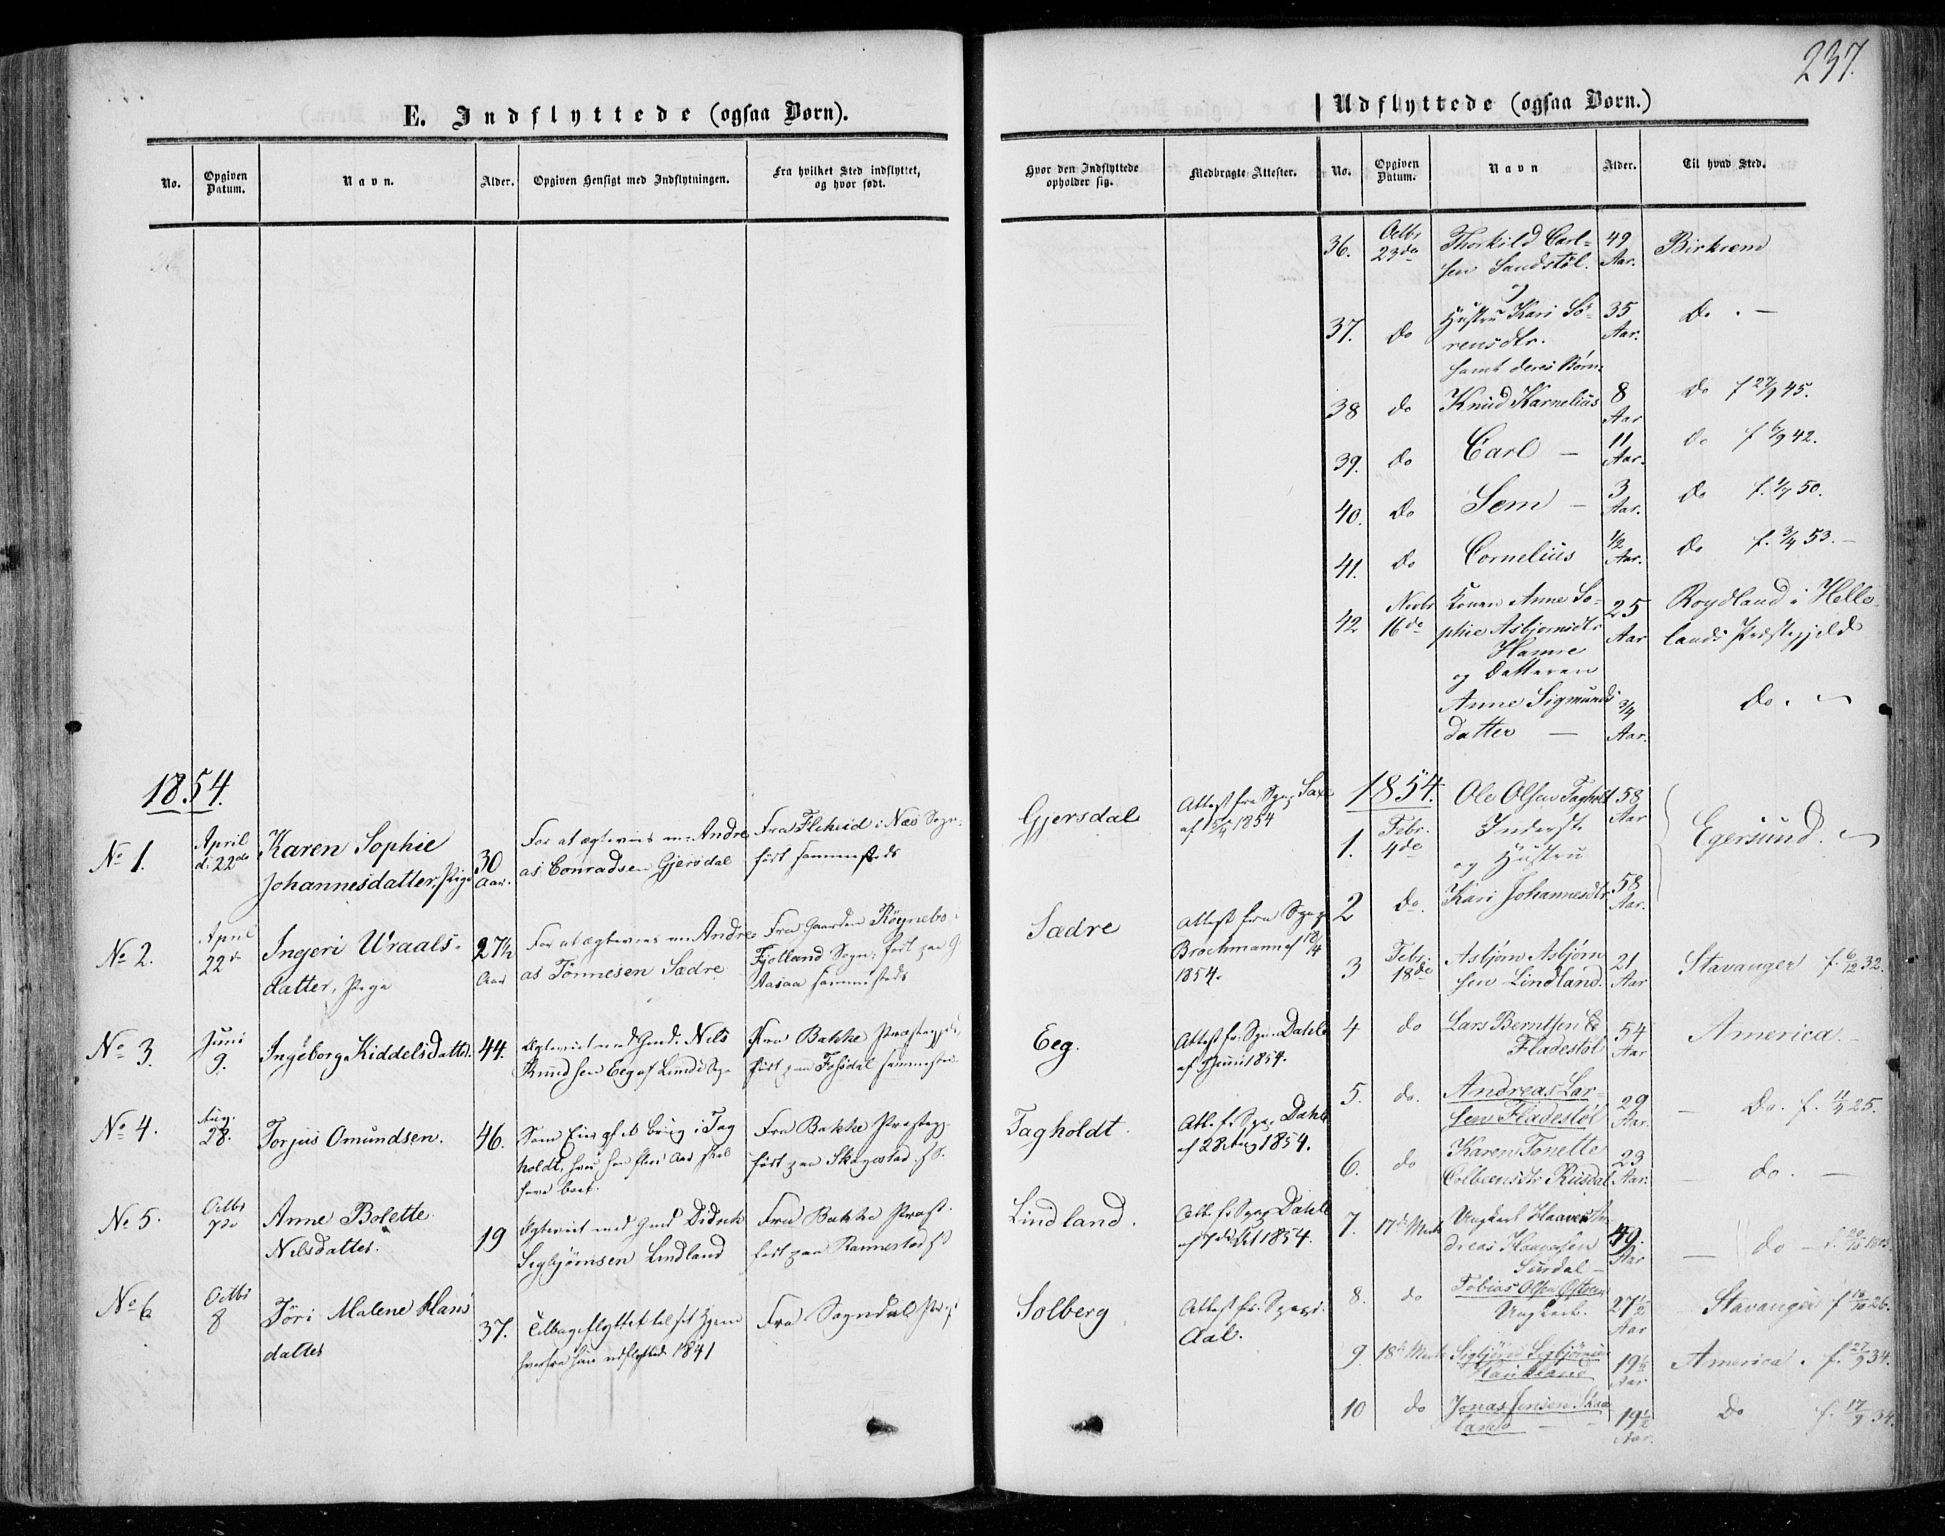 237.
E. Indflyttede (ogsaa Børn).
No.
Opgiven Datum.
Navn.
Alder.
Opgiven Hensigt med Indflytningen.
Fra hvilket Sted indflyttet, og hvor født.
Hvor den Indflyttede opholder sig.
Medbragte Attester.
1854.
No 1.
April d: 22de
Karen Sophie
Johannesdatter, Pige
30 Aar.
For at ægtevies m Andre
as Conradsen Gjersdal
Fra Fleheid i Næs Sogn,
født sammesteds
Gjersdal
Attest fra Sgpr
af 1854
No 2.
April 22d
Ingeri Uraals-
datter, Pige
27½ Aar
For at ægtevies m Andre
as Tönnesen Sadre
Fra Gaarden
Fjolland Sogn, født paa G
Aasaa sammesteds
Sadre
Attest fra Sgpr
Brochmann af
1854.
No 3.
Juni 9.
Ingeborg Kiddelsdatter
44.
Ægteviet med Gmd. Nils
Knudsen Eeg af Lunds Sgn
Fra Bakke Præstegjeld,
født paa sammested
Eeg.
Attest fr. Sgpr. Dahle
af 9 Juni 1854.
No 4.
Aug. 28.
Torjus Omundsen.
46.
Som af Brug i Tag
holdt, hvor han flere Aar skal
have boet.
Fra Bakke Præstegj.
født paa Skogestad
Tagholdt.
Att. f. Sgpr Dahle
af 28 Aug 1854.
No 5.
Octbr 7de
Anne Bolette
Nilsdatter.
19
Ægteviet med Gmd Didrik
Sigbjörnsen Lindland
Fra Bakke Præst.
født paa Rannestad
Lindland.
Att. f. Sgpr Dahle
af 7de Oct 1854.
No 6
Octbr 8
Jöri Malene Hans
datter
37.
Tilbageflyttet til sit Hjem
hvorfra hun udflyttede 1841
Fra Sogndal
Solberg
Attest fr. Sgpr.
Aal.
Udflyttede (ogsaa Børn.)
No.
Opgiven Datum.
Navn
Alder.
Til hvad Sted.
36.
Octbr 23de
Thorkild Carl=
sen Sandstöl.
49 Aar.
Birkrem
37.
do
Hustru Kari Sö-
rensdtr.
samt deres Børn:
35 Aar.
do. —
38
do
Knud Karnelius
8 Aar
do f 27/9 45.
39.
do
Carl —
11 Aar.
do f 6/9 42.
40.
do
Sem —
3 Aar.
do f. 50.
41.
do
Cornelius
1/2 Aar.
do f. 3/4 53. —
42
Novbr 16de
Konen Anne So-
phie Asbjörnsdtr
Hamre
og Datteren
25 Aar
Roydland i Helle-
lands Præstegjeld
Anne Sigmunds
datter —
3/4 Aar.
do. —
1854.
1.
Febr. 4de
Ole Olsen Tagholt
Inderst
og Hustru
58 Aar
Egersund.
2
do.
Kari Johannesdtr
58 Aar.
3
Febr. 18de
Asbjørn Asbjørn
sen Lindland.
21 Aar
Stavanger f. 6/12 32.
4
do
Lars Berntsen
Fladestöl
54 Aar
America. —
5.
do.
Andreas Lar-
sen Fladestöl
29 Aar.
— do. f. 25.
6.
do
Karen Tonette
Rusdal
23 Aar.
— do. —
7.
17de Marts
Ungkarl Haaver An
dreas
49. Aar
— do —
8.
do
Tobias Olsen
Ungkarl.
27½ Aar
Stavanger f 26.
9
18de Marts
Sigbjörn Sigbjörnsen
19½ Aar
America. f. 27/9 34.
10
do
Jonas Jensen
land —
19½ Aar.
do f. 17/9 34.